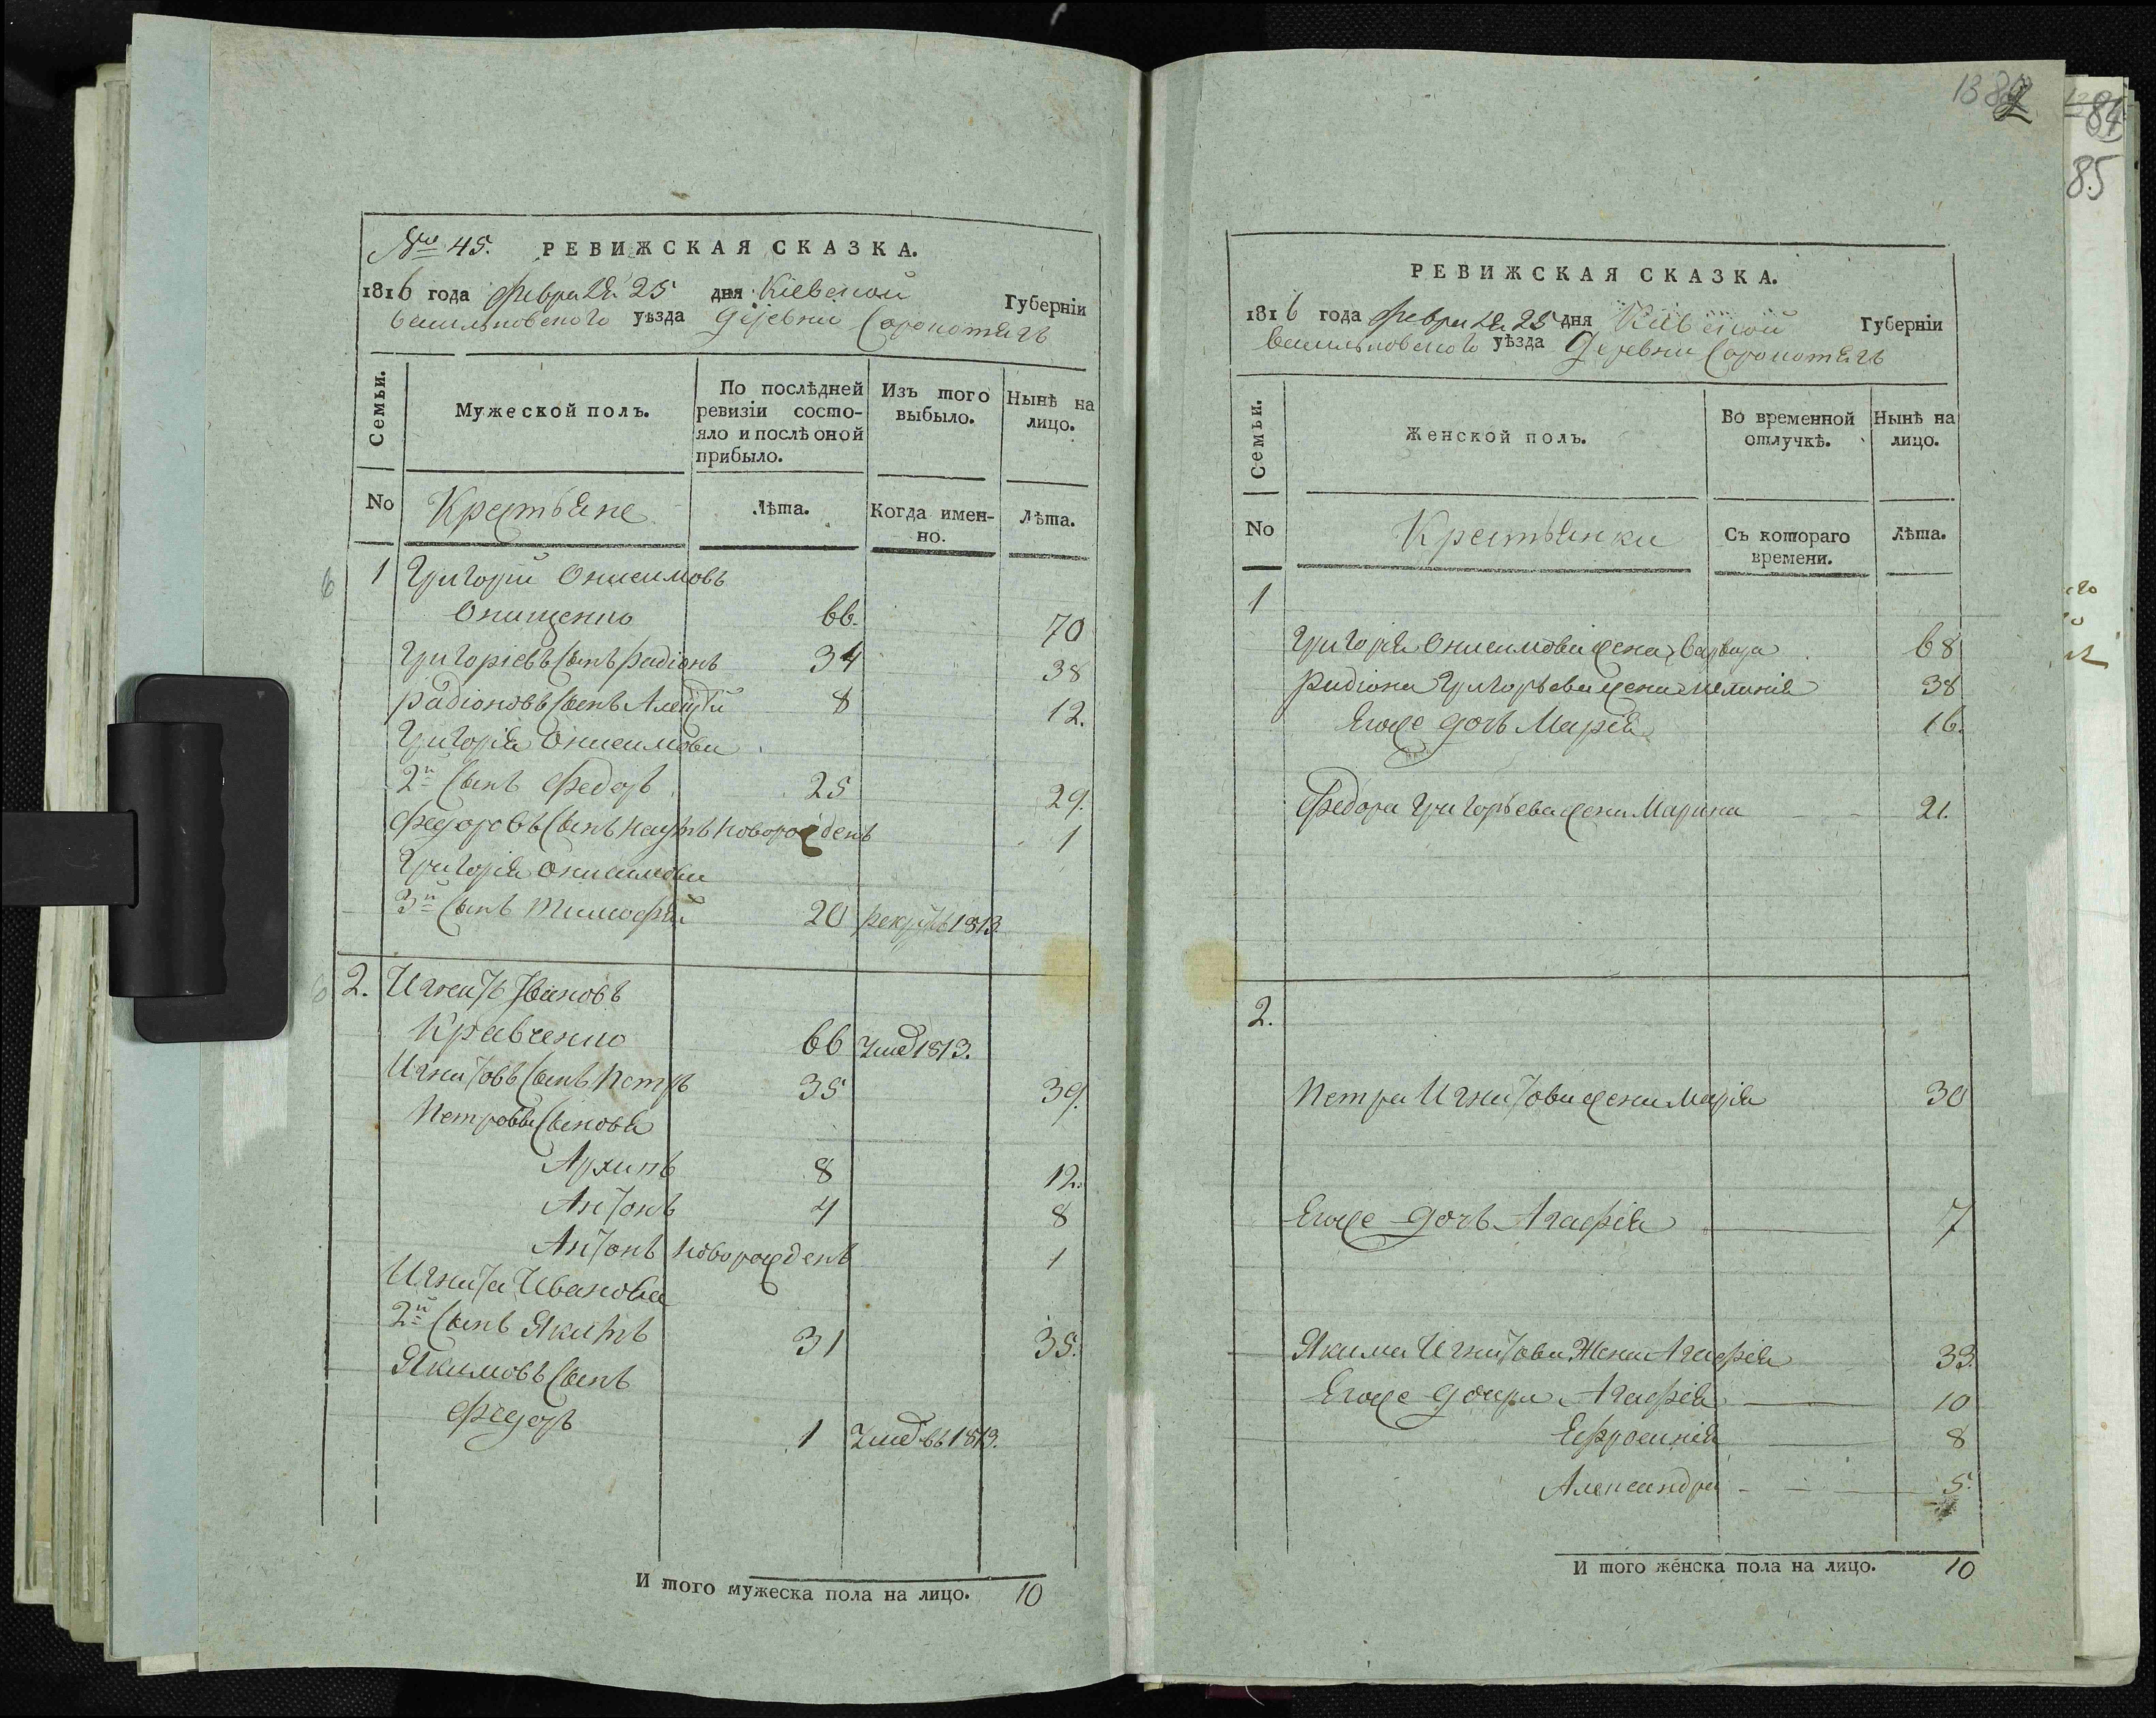 № 45. РЕВИЖСКАЯ СКАЗКА.
1816 года февраля 25 дня Кіевской Губерніи
васильковского уѣзда деревни Соропотягъ
Семьи.
Мужеской полъ.
По послѣдней ревизіи состояло и послѣ оной прибыло.
Изъ того выбыло.
Нынѣ на лицо.
No
Крестьяне
Лѣта.
Когда именно.
Лѣта.
1 Григорій Онисимовъ
Онищенко 66. 70
Григоріевъ Сынъ Радіонъ 34 38
Радіоновъ Сынъ Алексѣй 8 12.
Григорія Онисимова
2й Сынъ Федоръ 25 29.
Федоровъ Сынъ новорожденъ 1
Григорія Онисимова
3й Сынъ Тимофей 20 рекрутъ 1813.
2. Игнатъ Ивановъ
Кравченко 66 Умер 1813.
Игнатовъ Сынъ Петръ 35 39.
Петровы Сыновя
Архипъ 8 12.
Антонъ 4 8
Антонъ новорожденъ 1
Игната Иванова
2й Сынъ Якимъ 31 35.
Якимовъ Сынъ
Федоръ 1 Умер въ 1813.
И того мужеска пола на лицо. 10
138
82
РЕВИЖСКАЯ СКАЗКА.
1816 года февраля 25 дня Кіевской Губерніи
васильковского уѣзда Деревни Соропотягъ
Семьи.
Женской полъ.
Во временной отлучкѣ.
Нынѣ на лицо.
No
Крестьянки
Съ котораго времени.
Лѣта.
1
Григорія Онисимова жена Варвара 68
Радіона Григорьева жена Меланія 38
Егоже дочь Марія 16.
Федора Григорьева жена Марина 21.
2.
Петра Игнатова жена Марія 30
Егоже дочь Агафія 7
Якима Игнатова Жена Агафія 33.
Егоже дочери Агафія 10
Ефросинія 8
Александра 5.
И того женска пола на лицо. 10
84
85